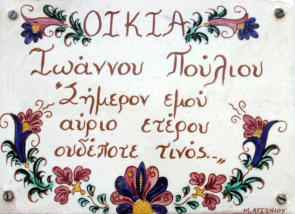 ΟΙΚΙΑ
Ἰωάννου Πούλιου
"Σήμερον εμού
αύριο ετέρου
ουδέποτε τινός..,,
Μ. ΑΓΓΕΝΙΟΥ